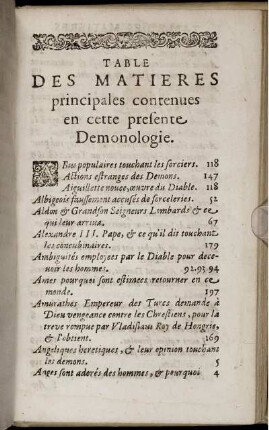 TABLE
DES MATIERES
principales contenues
en cette presente
Demonologie.
ABus populaires touchant les sorciers. 118
Actions estranges des Demons. 147
Aiguillette nouee, œuvre du Diable. 118
Albigeois faussement accusés de sorceleries. 52
Aldon & Grandson Seigneurs Limbards & ce
qui leur arriva. 67
Alexandre III. Pape, & ce qu'il dit touchant
les concubinaires. 179
Ambiguités employees par le Diable pour dece-
voir les hommes. 92.93.94
Ames pourquoi sont estimees retourner en ce
monde. 197
Amurathes Empereur des Turcs demande à
Dieu vengeance contre les Chrestiens, pour la
treve rompue par Vladislaus Roy de Hongrie,
& l'obtient. 169
Angeliques heretiques, & leur opinion touchant
les demons. 5
Anges sont adorés des hommes, & pourquoi 4